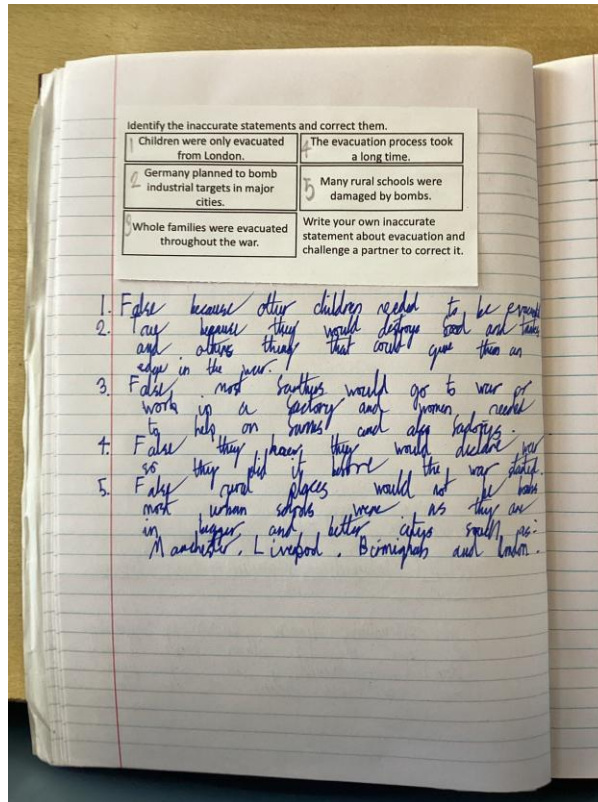 Identify the inaccurate statements and correct them.
1 Children were only evacuated
from London.
4 The evacuation process took
a long time.
2 Germany planned to bomb
industrial targets in major
cities.
5 Many rural schools were
damaged by bombs.
3 Whole families were evacuated
throughout the war.
Write your own inaccurate
statement about evacuation and
challenge a partner to correct it.
1. False because other children needed to be
2. True because they would destroy food and
and others things that could give them an
edge in the war.
3. False most would go to war or
work in a factory and women needed
to help on and also
4. False they they would declare war
so they did it before the war started.
5. False rural places would not be
most urban schools were as they are
in bigger and better citys as:
Manchester, Liverpool, and London.